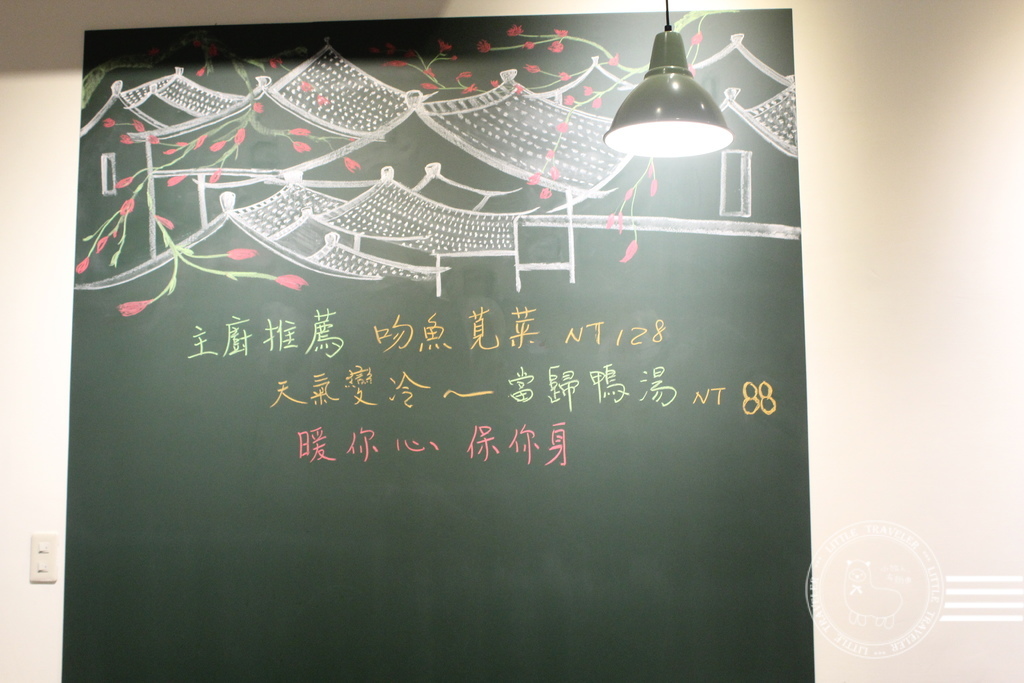 主廚推薦 吻魚莧菜 NT 128
天氣變冷～當歸鴨湯 NT 88
暖你心 保你身
LITTLE TRAVELER LITTLE TRAVELER LITTLE TRAVELER